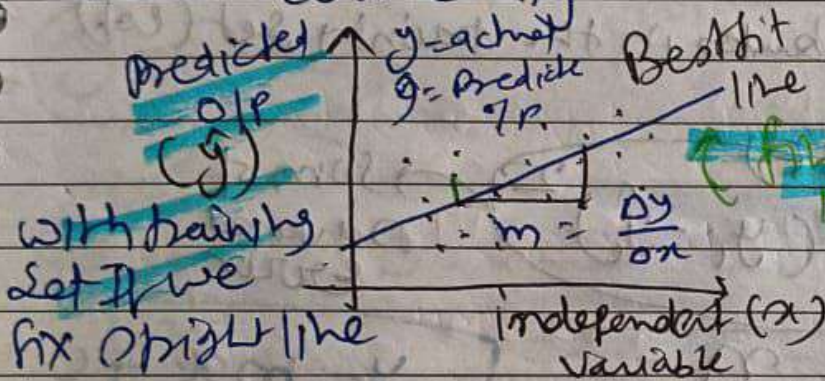 Predicted
O/P
(ŷ)
with training
Set If we
fix
line
y = actual
ŷ = Predicte
Best fit
line
m = Δy
Δx
independent (x)
variable